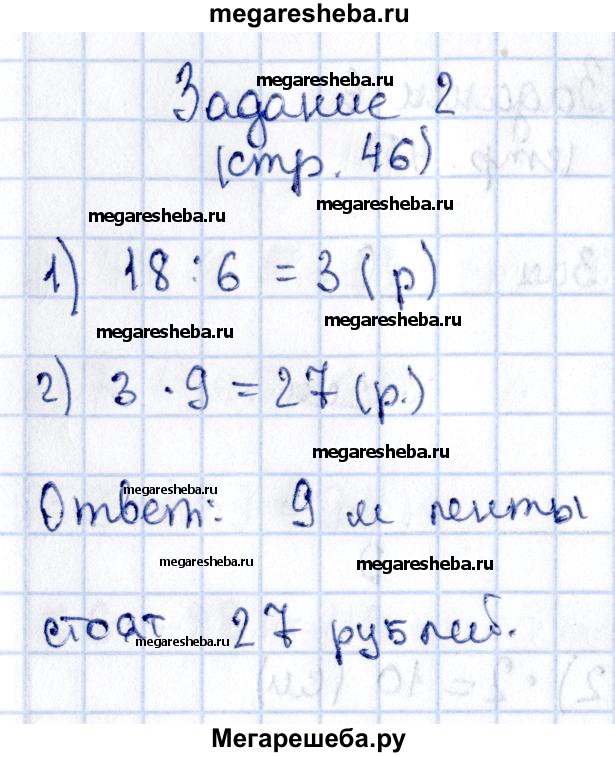 megaresheba.ru
megaresheba.ru
Задание 2
(стр. 46)
megaresheba.ru
megaresheba.ru
1) 18 : 6 = 3 (р)
megaresheba.ru
megaresheba.ru
2) 3 · 9 = 27 (р.)
megaresheba.ru
megaresheba.ru
Ответ: 9 м ленты
megaresheba.ru
megaresheba.ru
стоят 27 рублей.
megaresheba.ru
megaresheba.ru
Мегарешеба.ру